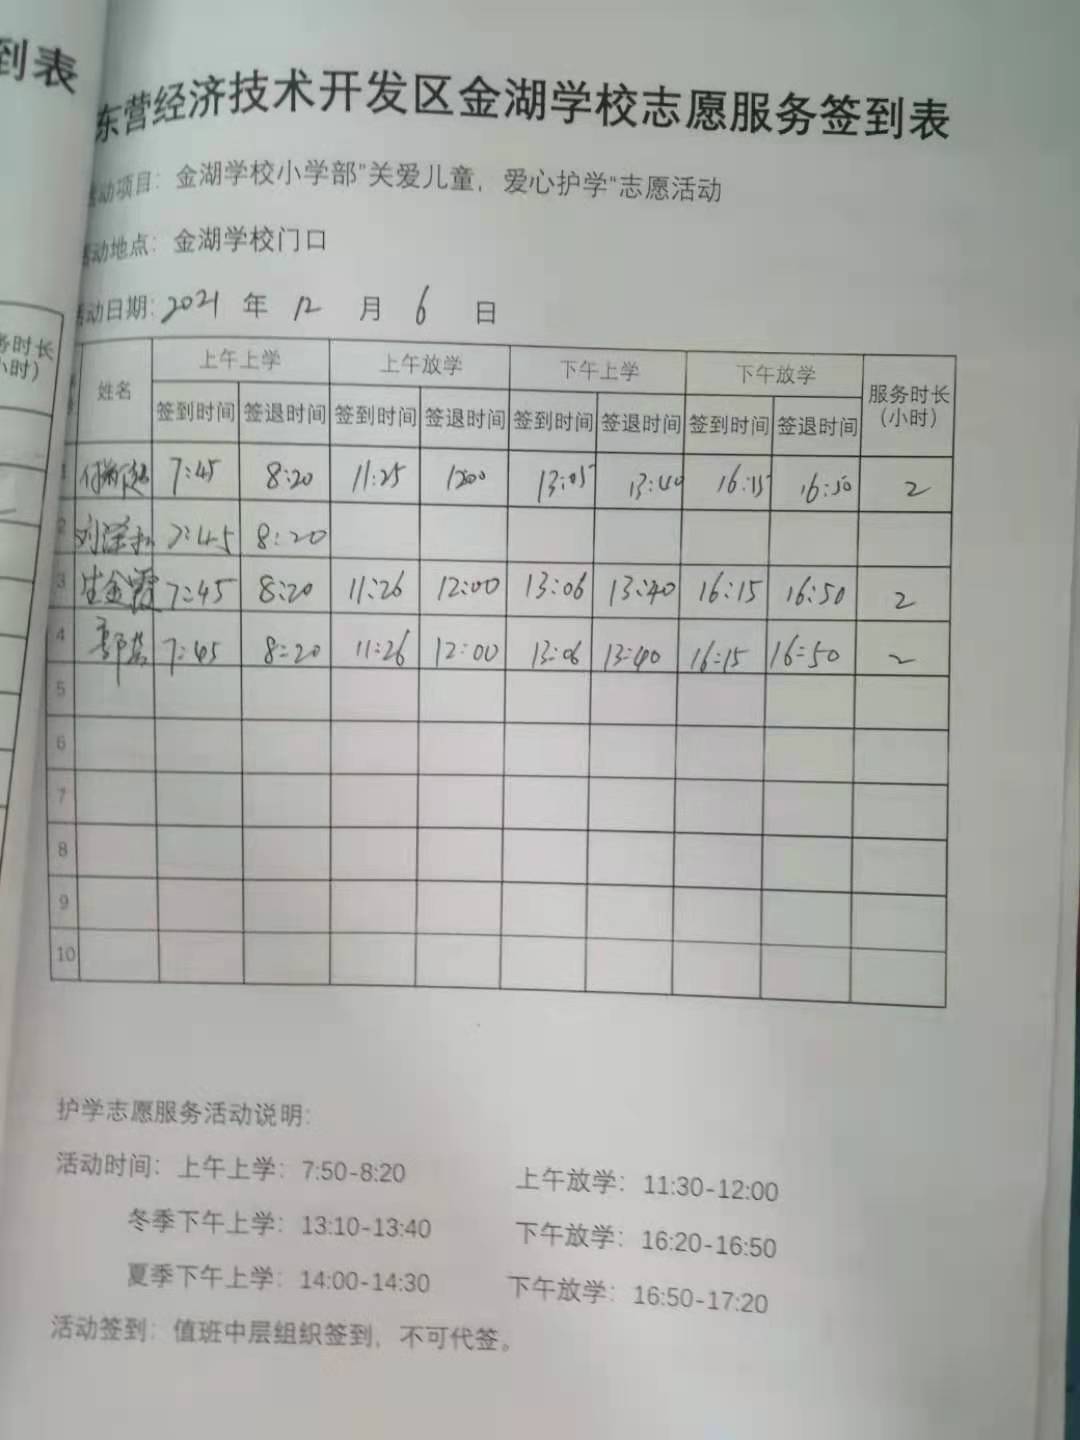 到表
东营经济技术开发区金湖学校志愿服务签到表
活动项目：金湖学校小学部"关爱儿童，爱心护学"志愿活动
活动地点：金湖学校门口
活动日期：2021 年 12 月 6 日
务时长
小时）
姓名 上午上学 上午放学 下午上学 下午放学 服务时长（小时）
签到时间 签退时间 签到时间 签退时间 签到时间 签退时间 签到时间 签退时间
7:45 8:20 11:25 1200 13:05 13:40 16:15 16:50 2
2 7:45 8:20
3 生金霞 7:45 8:20 11:26 12:00 13:06 13:40 16:15 16:50 2
4 7:45 8:20 11:26 12:00 13:06 13:40 16:15 16:50 2
5
6
7
8
9
10
护学志愿服务活动说明：
活动时间：上午上学：7:50-8:20 上午放学：11:30-12:00
冬季下午上学：13:10-13:40 下午放学：16:20-16:50
夏季下午上学：14:00-14:30 下午放学：16:50-17:20
活动签到：值班中层组织签到，不可代签。